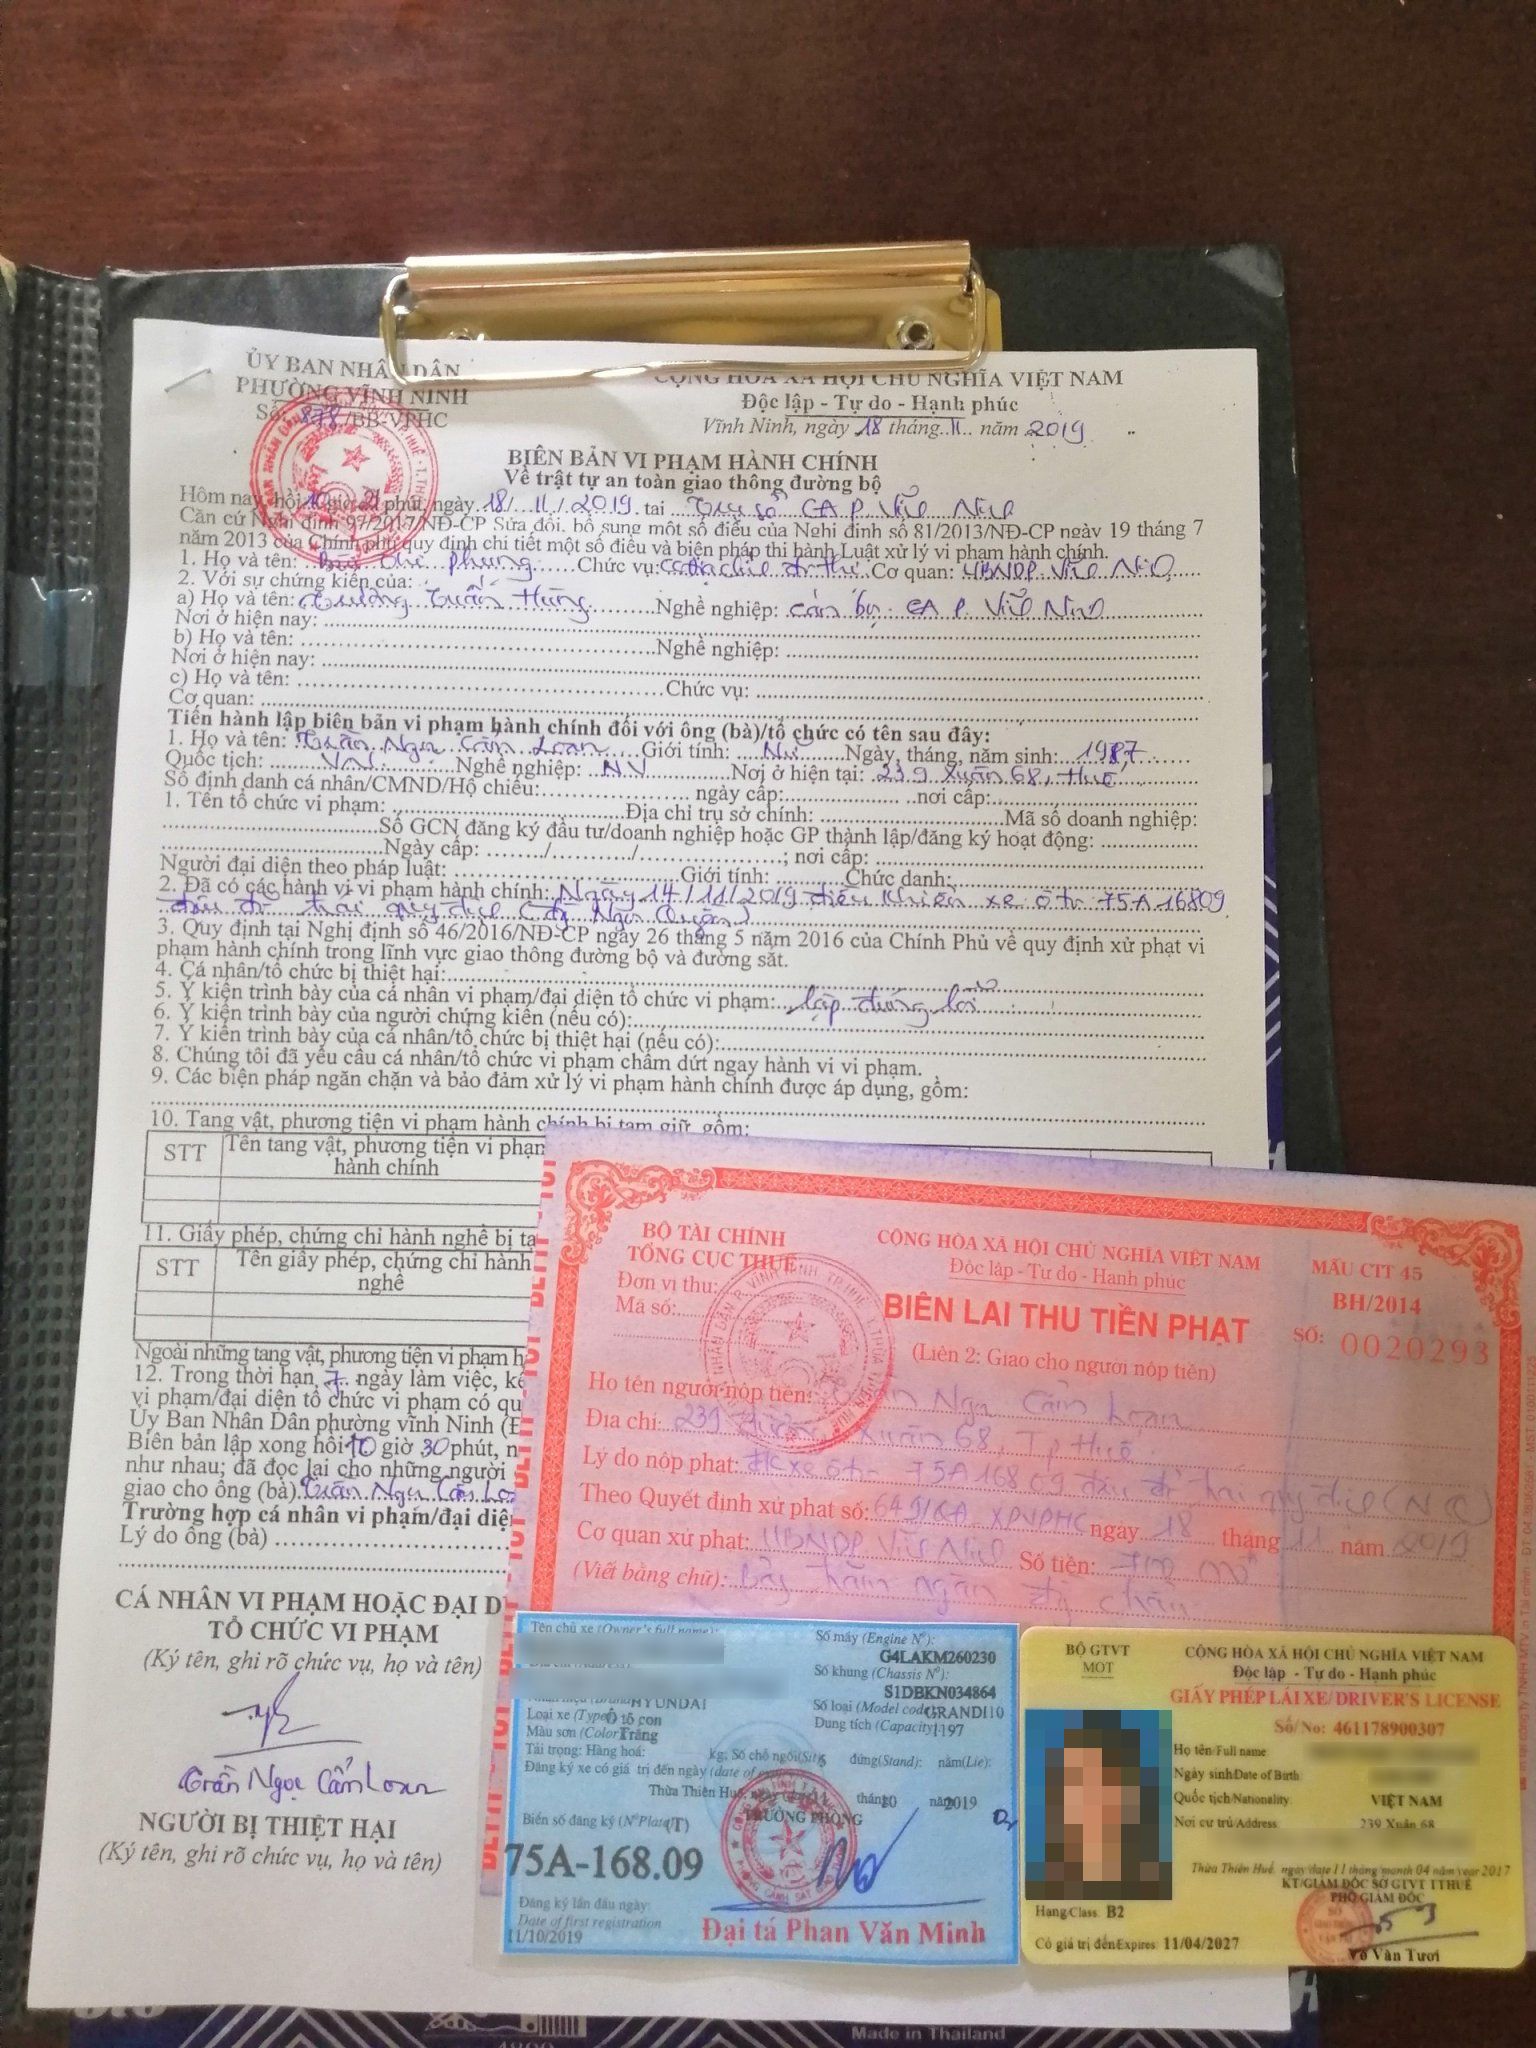 ỦY BAN NHÂN DÂN
PHƯỜNG VĨNH NINH
Số: 878/BB-VPHC
CỘNG HÒA XÃ HỘI CHỦ NGHĨA VIỆT NAM
Độc lập - Tự do - Hạnh phúc
Vĩnh Ninh, ngày 18 tháng 11 năm 2019
BIÊN BẢN VI PHẠM HÀNH CHÍNH
Về trật tự an toàn giao thông đường bộ
Hôm nay, hồi 10 giờ 21 phút, ngày 18/11/2019 tại Trụ sở CA P Vĩnh Ninh
Căn cứ Nghị định 97/2017/NĐ-CP Sửa đổi, bổ sung một số điều của Nghị định số 81/2013/NĐ-CP ngày 19 tháng 7
năm 2013 của Chính phủ quy định chi tiết một số điều và biện pháp thi hành Luật xử lý vi phạm hành chính.
1. Họ và tên: Phụng Chức vụ: Cơ quan: UBNDP Vĩnh Ninh
2. Với sự chứng kiến của:
a) Họ và tên: Trương Tuấn Hùng Nghề nghiệp: cán bộ CA P. Vĩnh Ninh
Nơi ở hiện nay:
b) Họ và tên: Nghề nghiệp:
Nơi ở hiện nay:
c) Họ và tên: Chức vụ:
Cơ quan:
Tiến hành lập biên bản vi phạm hành chính đối với ông (bà)/tổ chức có tên sau đây:
1. Họ và tên: Trần Ngọc Cẩm Loan Giới tính: Nữ Ngày, tháng, năm sinh: 1987
Quốc tịch: VN Nghề nghiệp: NV Nơi ở hiện tại: 239 Xuân 68, Huế
Số định danh cá nhân/CMND/Hộ chiếu: ngày cấp: nơi cấp:
1. Tên tổ chức vi phạm: Địa chỉ trụ sở chính: Mã số doanh nghiệp:
Số GCN đăng ký đầu tư/doanh nghiệp hoặc GP thành lập/đăng ký hoạt động:
Ngày cấp: ......../.........../..............; nơi cấp:
Người đại diện theo pháp luật: Giới tính: Chức danh:
2. Đã có các hành vi vi phạm hành chính: Ngày 14/11/2019 điều khiển xe ô tô 75A 16809
đậu đỗ trái quy định (Ngô Quyền)
3. Quy định tại Nghị định số 46/2016/NĐ-CP ngày 26 tháng 5 năm 2016 của Chính Phủ về quy định xử phạt vi
phạm hành chính trong lĩnh vực giao thông đường bộ và đường sắt.
4. Cá nhân/tổ chức bị thiệt hại:
5. Ý kiến trình bày của cá nhân vi phạm/đại diện tổ chức vi phạm: lập đúng lỗi
6. Ý kiến trình bày của người chứng kiến (nếu có):
7. Ý kiến trình bày của cá nhân/tổ chức bị thiệt hại (nếu có):
8. Chúng tôi đã yêu cầu cá nhân/tổ chức vi phạm chấm dứt ngay hành vi vi phạm.
9. Các biện pháp ngăn chặn và bảo đảm xử lý vi phạm hành chính được áp dụng, gồm:
10. Tang vật, phương tiện vi phạm hành chính bị tạm giữ, gồm:
STT Tên tang vật, phương tiện vi phạm
hành chính
11. Giấy phép, chứng chỉ hành nghề bị tạ
STT Tên giấy phép, chứng chỉ hành
nghề
Ngoài những tang vật, phương tiện vi phạm h
12. Trong thời hạn 7 ngày làm việc, kể
vi phạm/đại diện tổ chức vi phạm có qu
Ủy Ban Nhân Dân phường vĩnh Ninh (Đ
Biên bản lập xong hồi 10 giờ 30 phút, n
như nhau; đã đọc lại cho những người
giao cho ông (bà) Trần Ngọc Cẩm Loan
Trường hợp cá nhân vi phạm/đại diện
Lý do ông (bà)
CÁ NHÂN VI PHẠM HOẶC ĐẠI D
TỔ CHỨC VI PHẠM
(Ký tên, ghi rõ chức vụ, họ và tên)
Trần Ngọc Cẩm Loan
NGƯỜI BỊ THIỆT HẠI
(Ký tên, ghi rõ chức vụ, họ và tên)
BỘ TÀI CHÍNH
TỔNG CỤC THUẾ
Đơn vị thu:
Mã số:
CỘNG HÒA XÃ HỘI CHỦ NGHĨA VIỆT NAM
Độc lập - Tự do - Hạnh phúc
MẪU CTT 45
BH/2014
BIÊN LAI THU TIỀN PHẠT
SỐ: 0020293
(Liên 2: Giao cho người nộp tiền)
Họ tên người nộp tiền: Trần Ngọc Cẩm Loan
Địa chỉ: 239 đường Xuân 68, Tp Huế
Lý do nộp phạt: ĐK xe ô tô 75A 168 09 đậu đỗ trái quy định (NQ)
Theo Quyết định xử phạt số: XPVPHC ngày 18 tháng 11 năm 2019
Cơ quan xử phạt: UBNDP Vĩnh Ninh Số tiền: 700
(Viết bằng chữ): Bảy trăm ngàn đồng chẵn
Tên chủ xe (Owner's full name):
Địa chỉ (Address)
Nhãn hiệu (Brand) HYUNDAI
Loại xe (Type) Ô tô con
Màu sơn (Color) Trắng
Số máy (Engine N°):
G4LAKM260230
Số khung (Chassis N°):
S1DBKN034864
Số loại (Model code) GRANDI10
Dung tích (Capacity) 1197
Tải trọng: Hàng hoá: kg, Số chỗ ngồi(Sit) 5 đứng(Stand): nằm(Lie):
Đăng ký xe có giá trị đến ngày (date of
Thừa Thiên Huế, ngày 11 tháng 10 năm 2019
TRƯỞNG PHÒNG
Biển số đăng ký (N°Plate) (T)
75A-168.09
Đăng ký lần đầu ngày:
Date of first registration
11/10/2019
Đại tá Phan Văn Minh
BỘ GTVT
MOT
CỘNG HÒA XÃ HỘI CHỦ NGHĨA VIỆT NAM
Độc lập - Tự do - Hạnh phúc
GIẤY PHÉP LÁI XE/DRIVER'S LICENSE
Số/No: 461178900307
Họ tên/Full name
Ngày sinh/Date of Birth
Quốc tịch/Nationality VIỆT NAM
Nơi cư trú/Address 239 Xuân 68
Thừa Thiên Huế, ngày/date 11 tháng/month 04 năm/year 2017
KT/GIÁM ĐỐC SỞ GTVT TTHUẾ
PHÓ GIÁM ĐỐC
Hạng/Class: B2
Có giá trị đến/Expires: 11/04/2027
Võ Văn Tươi
Made in Thailand